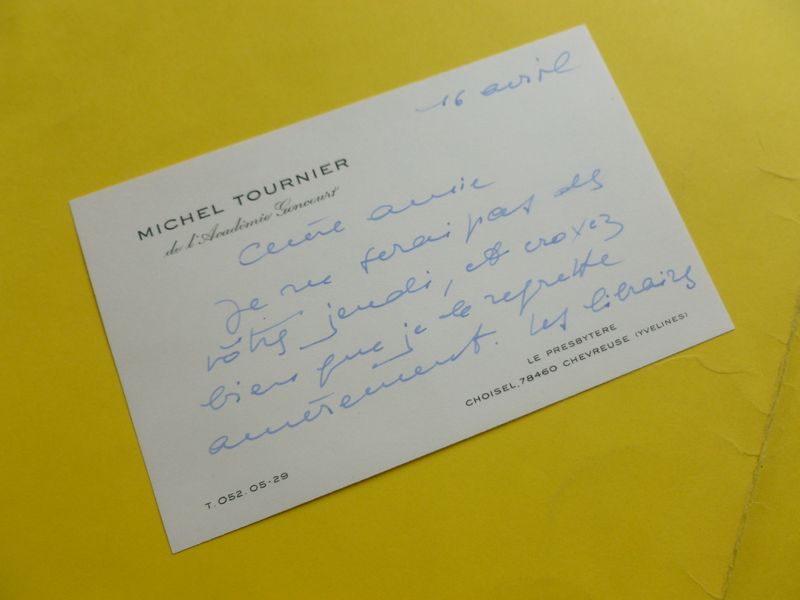 16 avril
MICHEL TOURNIER
de l'Académie Goncourt
Chère amie
Je ne serai pas des
vôtres jeudi, et croyez
bien que je le regrette
amèrement. Les libraires
LE PRESBYTERE
CHOISEL, 78460 CHEVREUSE (YVELINES)
T. 052. 05-29